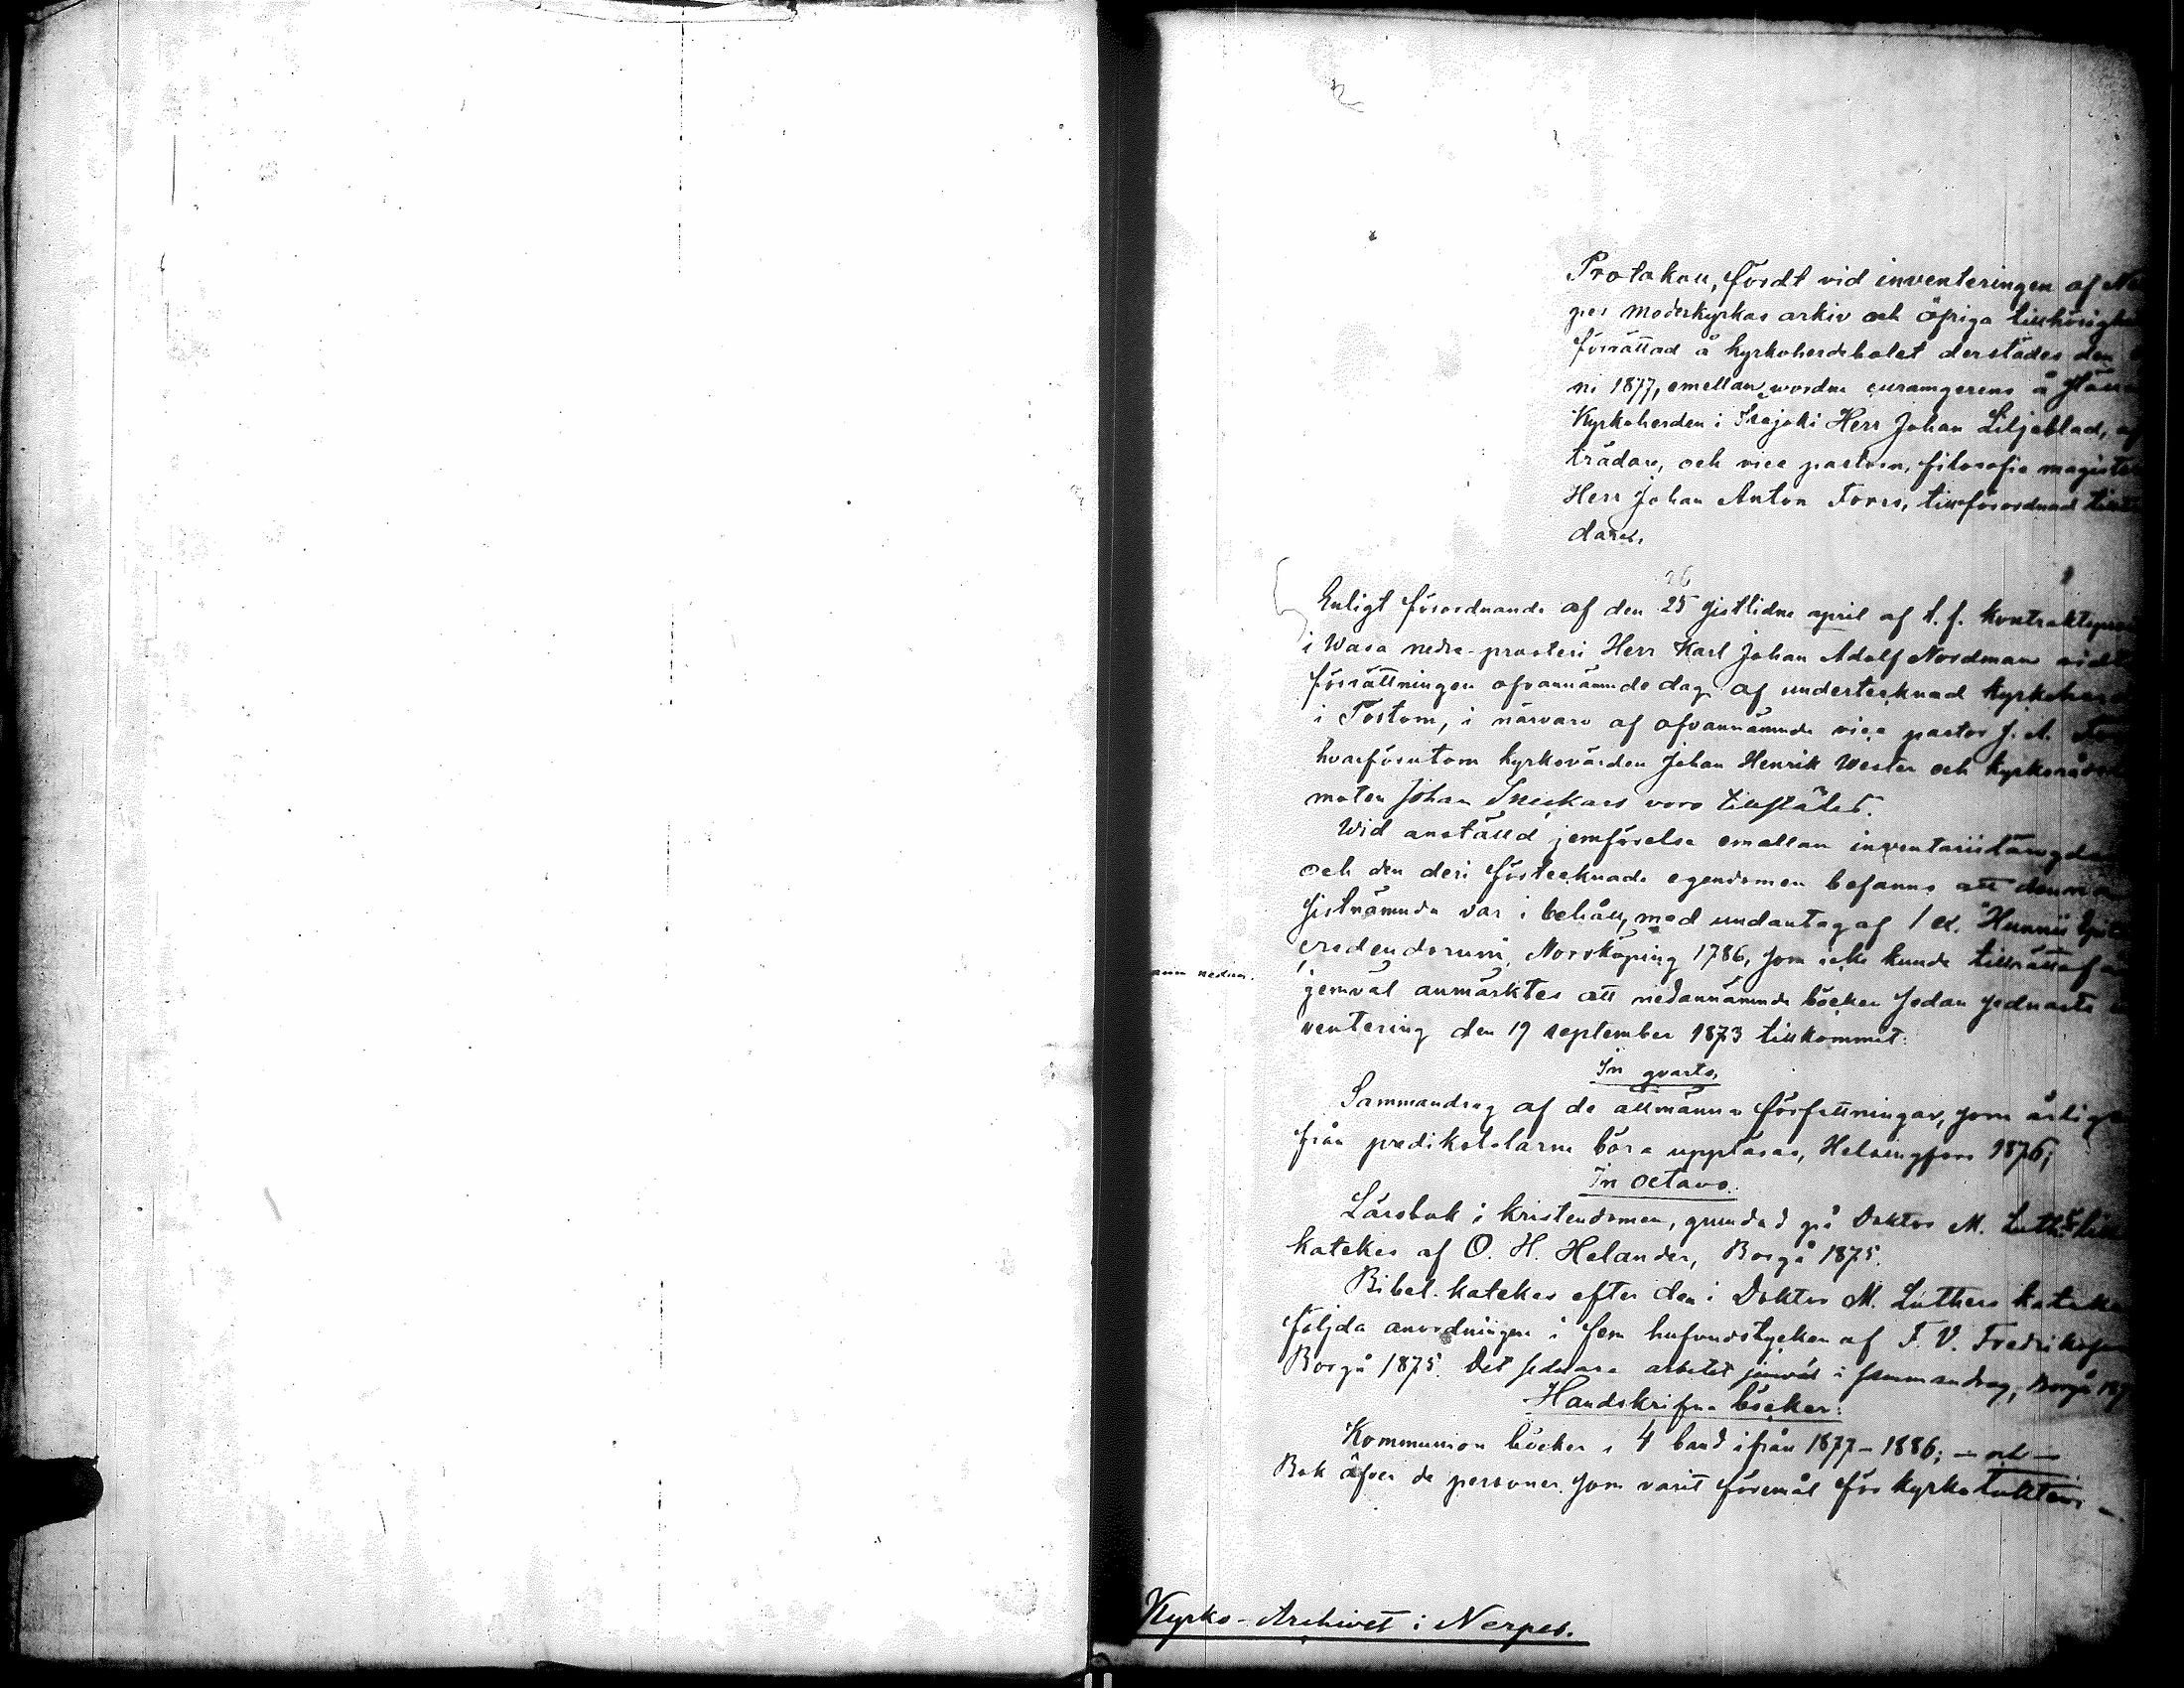 Protokoll, fördt vid inventeringen af Ner
pes moderkyrkas arkiv och öfriga tillhörighe
förrättad å kyrkoherdebolet derstädes den
ni 1877, emellan wordne curamgerens å
Kyrkoherden i Ilajoki Herr Johan Liljeblad, af
trädare, och vice pastorn, filosofie magister
Herr Johan Anton Torrs, tillförordnad tillträ
dare.
26
Enligt förordnande af den 25 sistlidne april af t. f. kontraktspros
i Wasa nedre prosteri Herr Karl Johan Adolf Nordman vidt
förrättningen ofvannämnde dag af undertecknad kyrkoherd
i Töstom, i närvaro af ofvannämnde vice pastor J. A.
hvarförutom kyrkovärden Johan Henrik Wester och kyrkorå
moten Johan Snickars voro tillstädes.
Wid anställd jemförelse emellan inventariilängden
och den deri förtecknade egendomen befanns att denna
sistnämnde var i behåll, med undantag af 1 ex. "Hunnii Epit
credendorum, Norrköping 1786, som icke kunde tillrättaf
anm nedan.
jemväl anmärktes att nedannämnde böcker sedan sednaste in
ventering den 19 september 1873 tillkommit:
In qvarto.
Sammandrag af de allmänna författningar, som årligen
från predikstolarne böra uppläsas, Helsingfors 1876;
In octavo.
Lärobok i kristendomen, grundad på Doktor M. Luth:s lilla
katekes af O. H. Helander, Borgå 1875.
Bibel-katekes efter den i Doktor M. Luthers kateke
följda anordningen i fem hufvudstycken af F. V. Fredriksson
Borgå 1875. Det sednare arbetet jemväl i sammandrag, Borgå 187
Handskrifna böcker:
Kommunion böcker i 4 band ifrån 1877-1886; — och —
Bok öfver de personer som varit föremål för kyrkotukten —
Kyrko-Archivet i Nerpes.